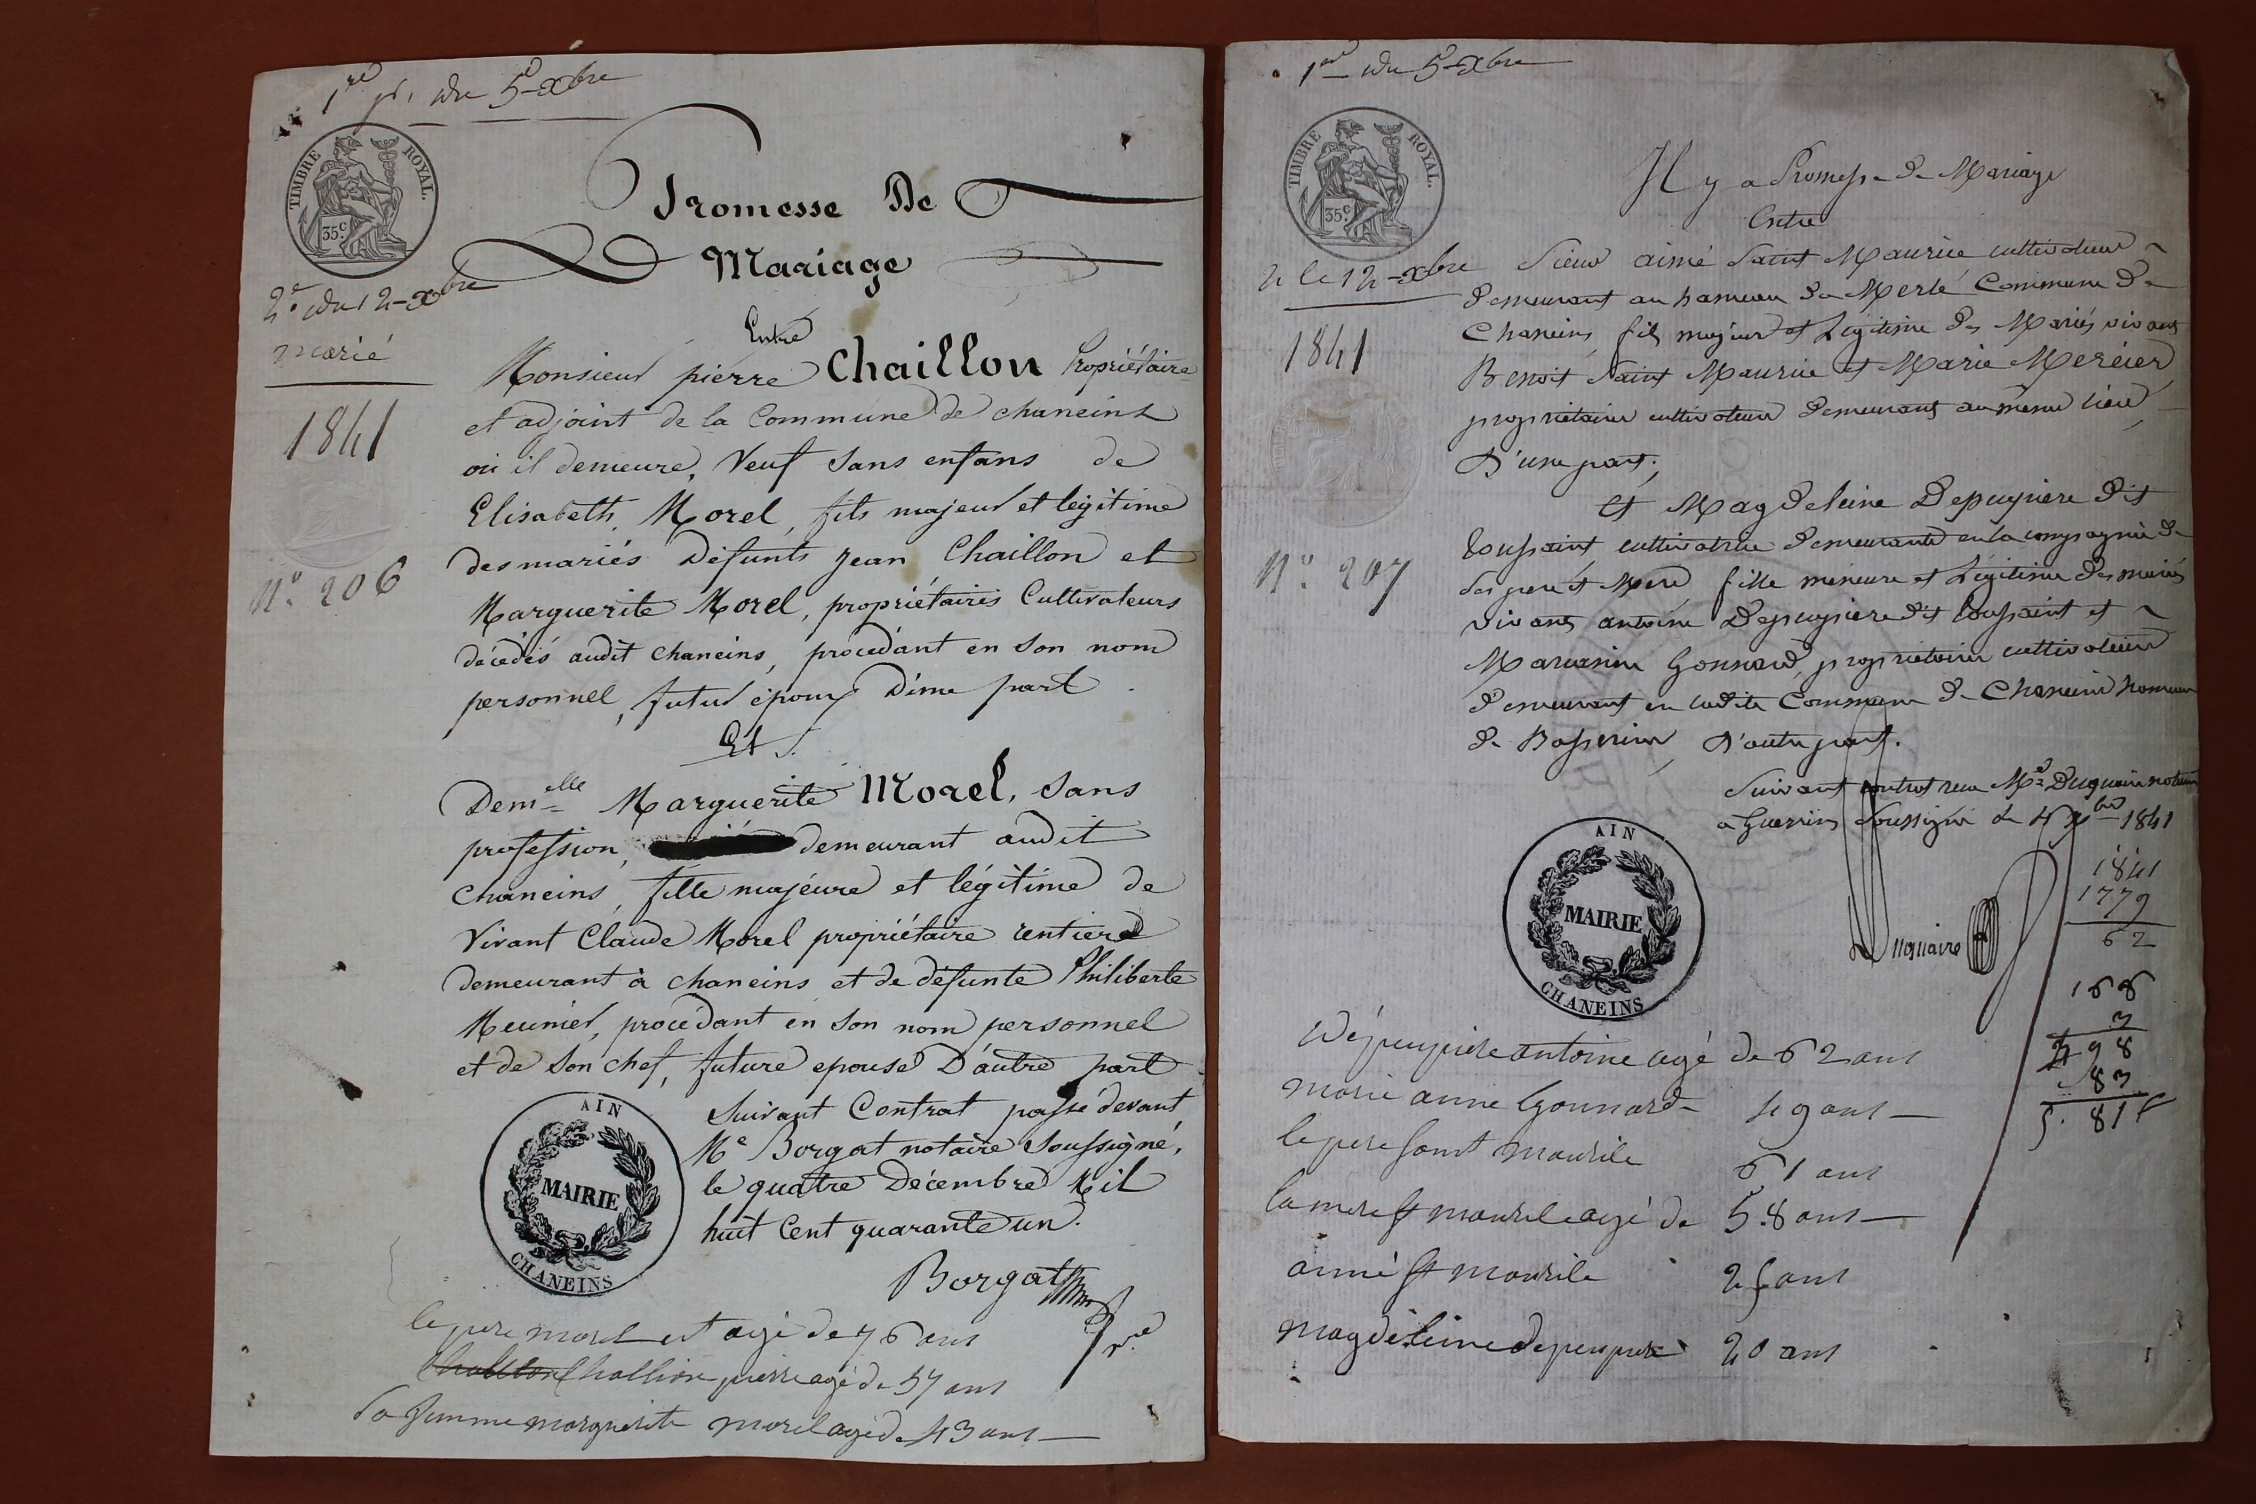 1re p. du 5 xbre
TIMBRE ROYAL.
35c.
Promesse De
Mariage
2e du 12 xbre
marié
1841
No. 206
Entre
Monsieur pierre Chaillon Propriétaire
et adjoint de la Commune de chaneins
où il demeure, Veuf sans enfans de
Elisabeth Morel, fils majeur et légitime
des mariés Défunts Jean Chaillon et
Marguerite Morel, propriétaires Cultivateurs
décédés audit chaneins, procédant en son nom
personnel, futur époux D'une part
Et
Demelle Marguerite Morel, sans
profession, demeurant audit
chaneins, fille majeure et légitime de
Vivant Claude Morel propriétaire rentier
demeurant à chaneins et de défunte Philiberte
Meunier, procédant en son nom personnel
et de son chef, future epouse D'autre part
Suivant Contrat passé devant
Me Borgat notaire soussigné,
le quatre Décembre Mil
huit Cent quarante un.
AIN
MAIRIE
CHANEINS
Borgat
le pere morel est agé de 76 ans
Challion pierre agé de 57 ans
Sa femme marguerite morel agé de 43 ans
1re du 5 xbre
TIMBRE ROYAL.
35c.
2 le 12 xbre
1841
No. 207
Il y a Promesse de Mariage
Entre
Sieur aimé Saint Maurice cultivateur
demeurant au hameau de Merlé Commune de
Chaneins, fils majeur et Légitime des Mariés vivants
Benoit Saint Maurice et Marie Mercier
propriétaires cultivateurs demeurants au même lieu,
D'une part;
Et Magdeleine Depuypiere dit
toussaint cultivatrice demeurante en la compagnie de
ses pere et Mere, fille mineure et Légitime des mariés
vivants antoine Depuypiere dit toussaint et
Marianne Gonnard, propriétaires cultivateurs
demeurants en ladite Commune de Chaneins hameau
de, D'autre part.
Suivant contrat reçu Me Duquaire notaire
a Guerrins soussigné le 4 xbre 1841
notaire
AIN
MAIRIE
CHANEINS
1841
1779
62
166
3
498
83
5.81
Dépuypiere antoine agé de 62 ans
marie anne Gonnard 49 ans
le pere saint maurile 61 ans
la mere st maurile agé de 58 ans
aimé st maurile 25 ans
magdeleine depeupiere 20 ans